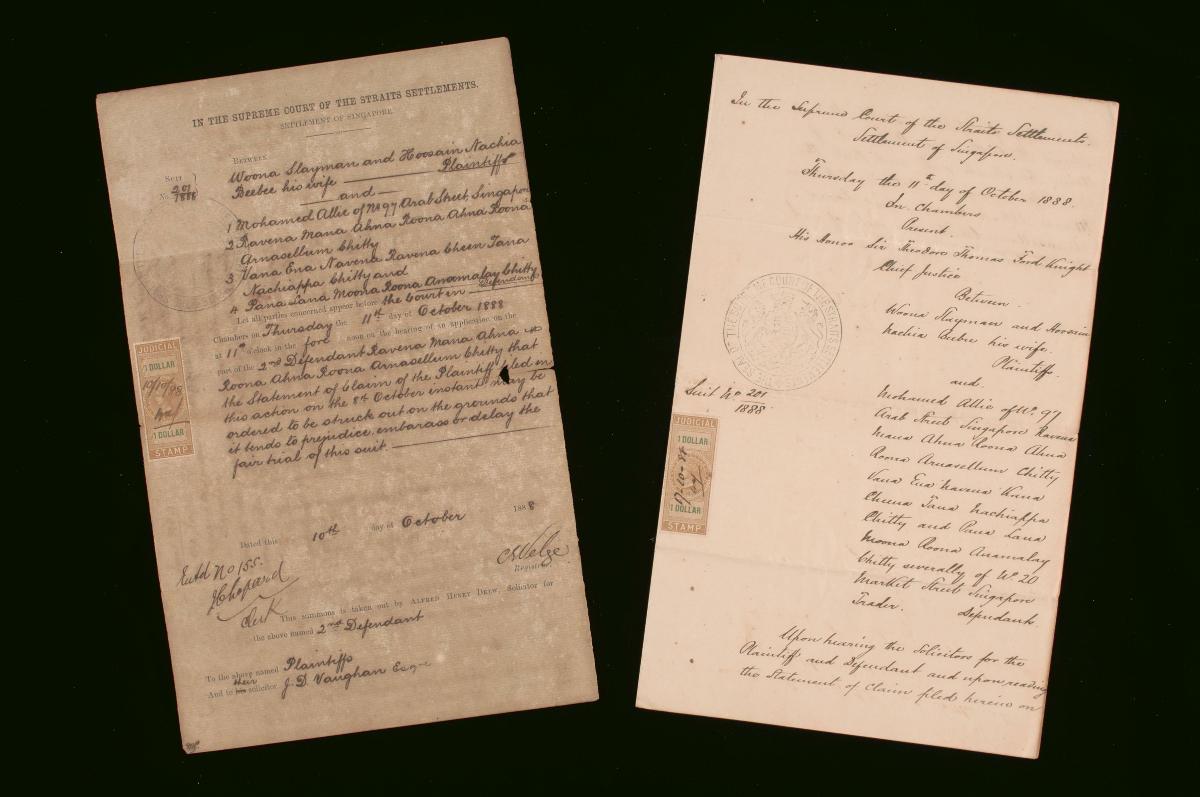 IN THE SUPREME COURT OF THE STRAITS SETTLEMENTS.
SETTLEMENT OF SINGAPORE.
BETWEEN
SUIT
No. 201/1888
Woona Slayman and Hoosain Nachia
Beebee his wife Plaintiffs
and
1 Mohamed Allie of No 97, Arab Street, Singapore
2 Ravena Mana Ahna Roona Ahna Roona
Arnasellum Chitty
3 Vana Ena Navena Ravena Cheen Tana
Nachiappa Chitty and
4 Pana Lana Moona Roona Anamalay Chitty
Defendants
Let all parties concerned appear before the Court in
Chambers on Thursday the 11th day of October 1888
at 11 o'clock in the fore noon on the hearing of an application on the
part of the 2nd Defendant Ravena Mana Ahna
Roona Ahna Roona Arnasellum Chitty that
the Statement of Claim of the Plaintiff filed in
this action on the 8th October instant may be
ordered to be struck out on the grounds that
it tends to prejudice, embarass or delay the
fair trial of this suit.
JUDICIAL
1 DOLLAR
10/10/88
1 DOLLAR
STAMP
Dated this 10th day of October 1888
Entd No 155.
Registrar
Clerk
This summons is taken out by ALFRED HENRY DREW, Solicitor for
the above named 2nd Defendant
To the above named Plaintiffs
And to their his solicitor J. D. Vaughan Esqre
In the Supreme Court of the Straits Settlements.
Settlement of Singapore.
Thursday the 11th day of October 1888
In Chambers
Present.
His Honor Sir Theodore Thomas Ford Knight
Chief Justice
Between
Woona Slayman and Hoosain
Nachia Beebee his wife.
Plaintiffs
and.
Suit No 201/1888
Mohamed Allie of No. 97
Arab Street Singapore Ravena
Mana Ahna Roona Ahna
Roona Arnasellum Chitty
Vana Ena Navena Rana
Cheena Tana Nachiappa
Chitty and Pana Lana
Moona Roona Anamalay
Chitty severally of No 20
Market Street Singapore
Trader. Defendants.
JUDICIAL
1 DOLLAR
1 DOLLAR
STAMP
Upon hearing the Solicitors for the
Plaintiff and Defendant and upon reading
the Statement of Claim filed herein on